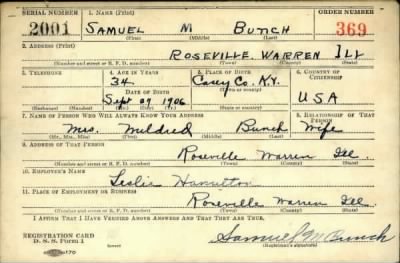 SERIAL NUMBER 1. NAME (Print) ORDER NUMBER
2001 SAMUEL M BUNCH 369
(First) (Middle) (Last)
2. ADDRESS (Print)
ROSEVILLE WARREN ILL
(Number and street or R. F. D. number) (Town) (County) (State)
3. TELEPHONE 4. AGE IN YEARS 5. PLACE OF BIRTH 6. COUNTRY OF CITIZENSHIP
34 Casey Co. KY.
DATE OF BIRTH (Town or county)
Sept 09 1906 USA
(Exchange) (Number) (Mo.) (Day) (Yr.) (State or country)
7. NAME OF PERSON WHO WILL ALWAYS KNOW YOUR ADDRESS 8. RELATIONSHIP OF THAT PERSON
Mrs. Mildred Bunch Wife
(Mr., Mrs., Miss) (First) (Middle) (Last)
9. ADDRESS OF THAT PERSON
Roseville Warren Ill.
(Number and street or R. F. D. number) (Town) (County) (State)
10. EMPLOYER'S NAME
Leslie Hamilton
11. PLACE OF EMPLOYMENT OR BUSINESS
Roseville Warren Ill.
(Number and street or R. F. D. number) (Town) (County) (State)
I AFFIRM THAT I HAVE VERIFIED ABOVE ANSWERS AND THAT THEY ARE TRUE.
REGISTRATION CARD
D. S. S. Form 1 Samuel M Bunch
(Registrant's signature)